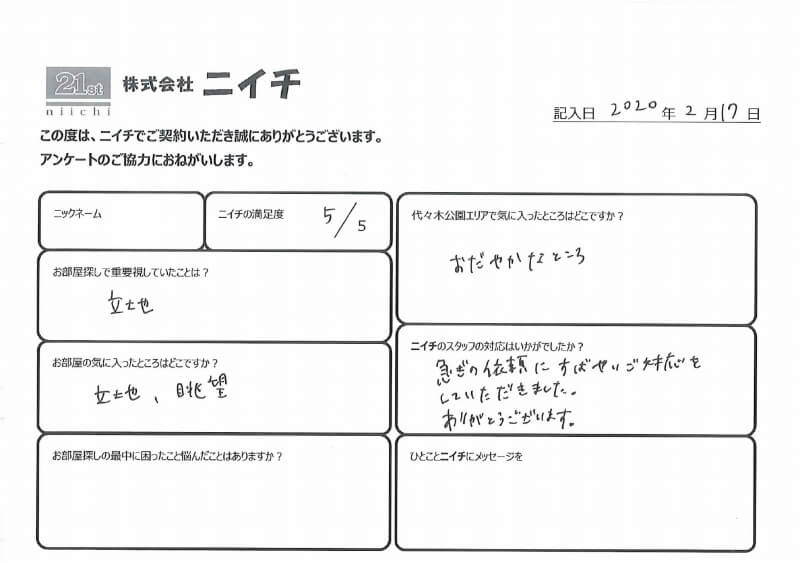 21st
niichi
株式会社 ニイチ
記入日 2020 年 2 月 17 日
この度は、ニイチでご契約いただき誠にありがとうございます。
アンケートのご協力におねがいします。
ニックネーム
ニイチの満足度 5/5
お部屋探しで重要視していたことは？
立地
お部屋の気に入ったところはどこですか？
立地、眺望
お部屋探しの最中に困ったこと悩んだことはありますか？
代々木公園エリアで気に入ったところはどこですか？
おだやかなところ
ニイチのスタッフの対応はいかがでしたか？
急ぎの依頼にすばやいご対応を
していただきました。
ありがとうございます。
ひとことニイチにメッセージを